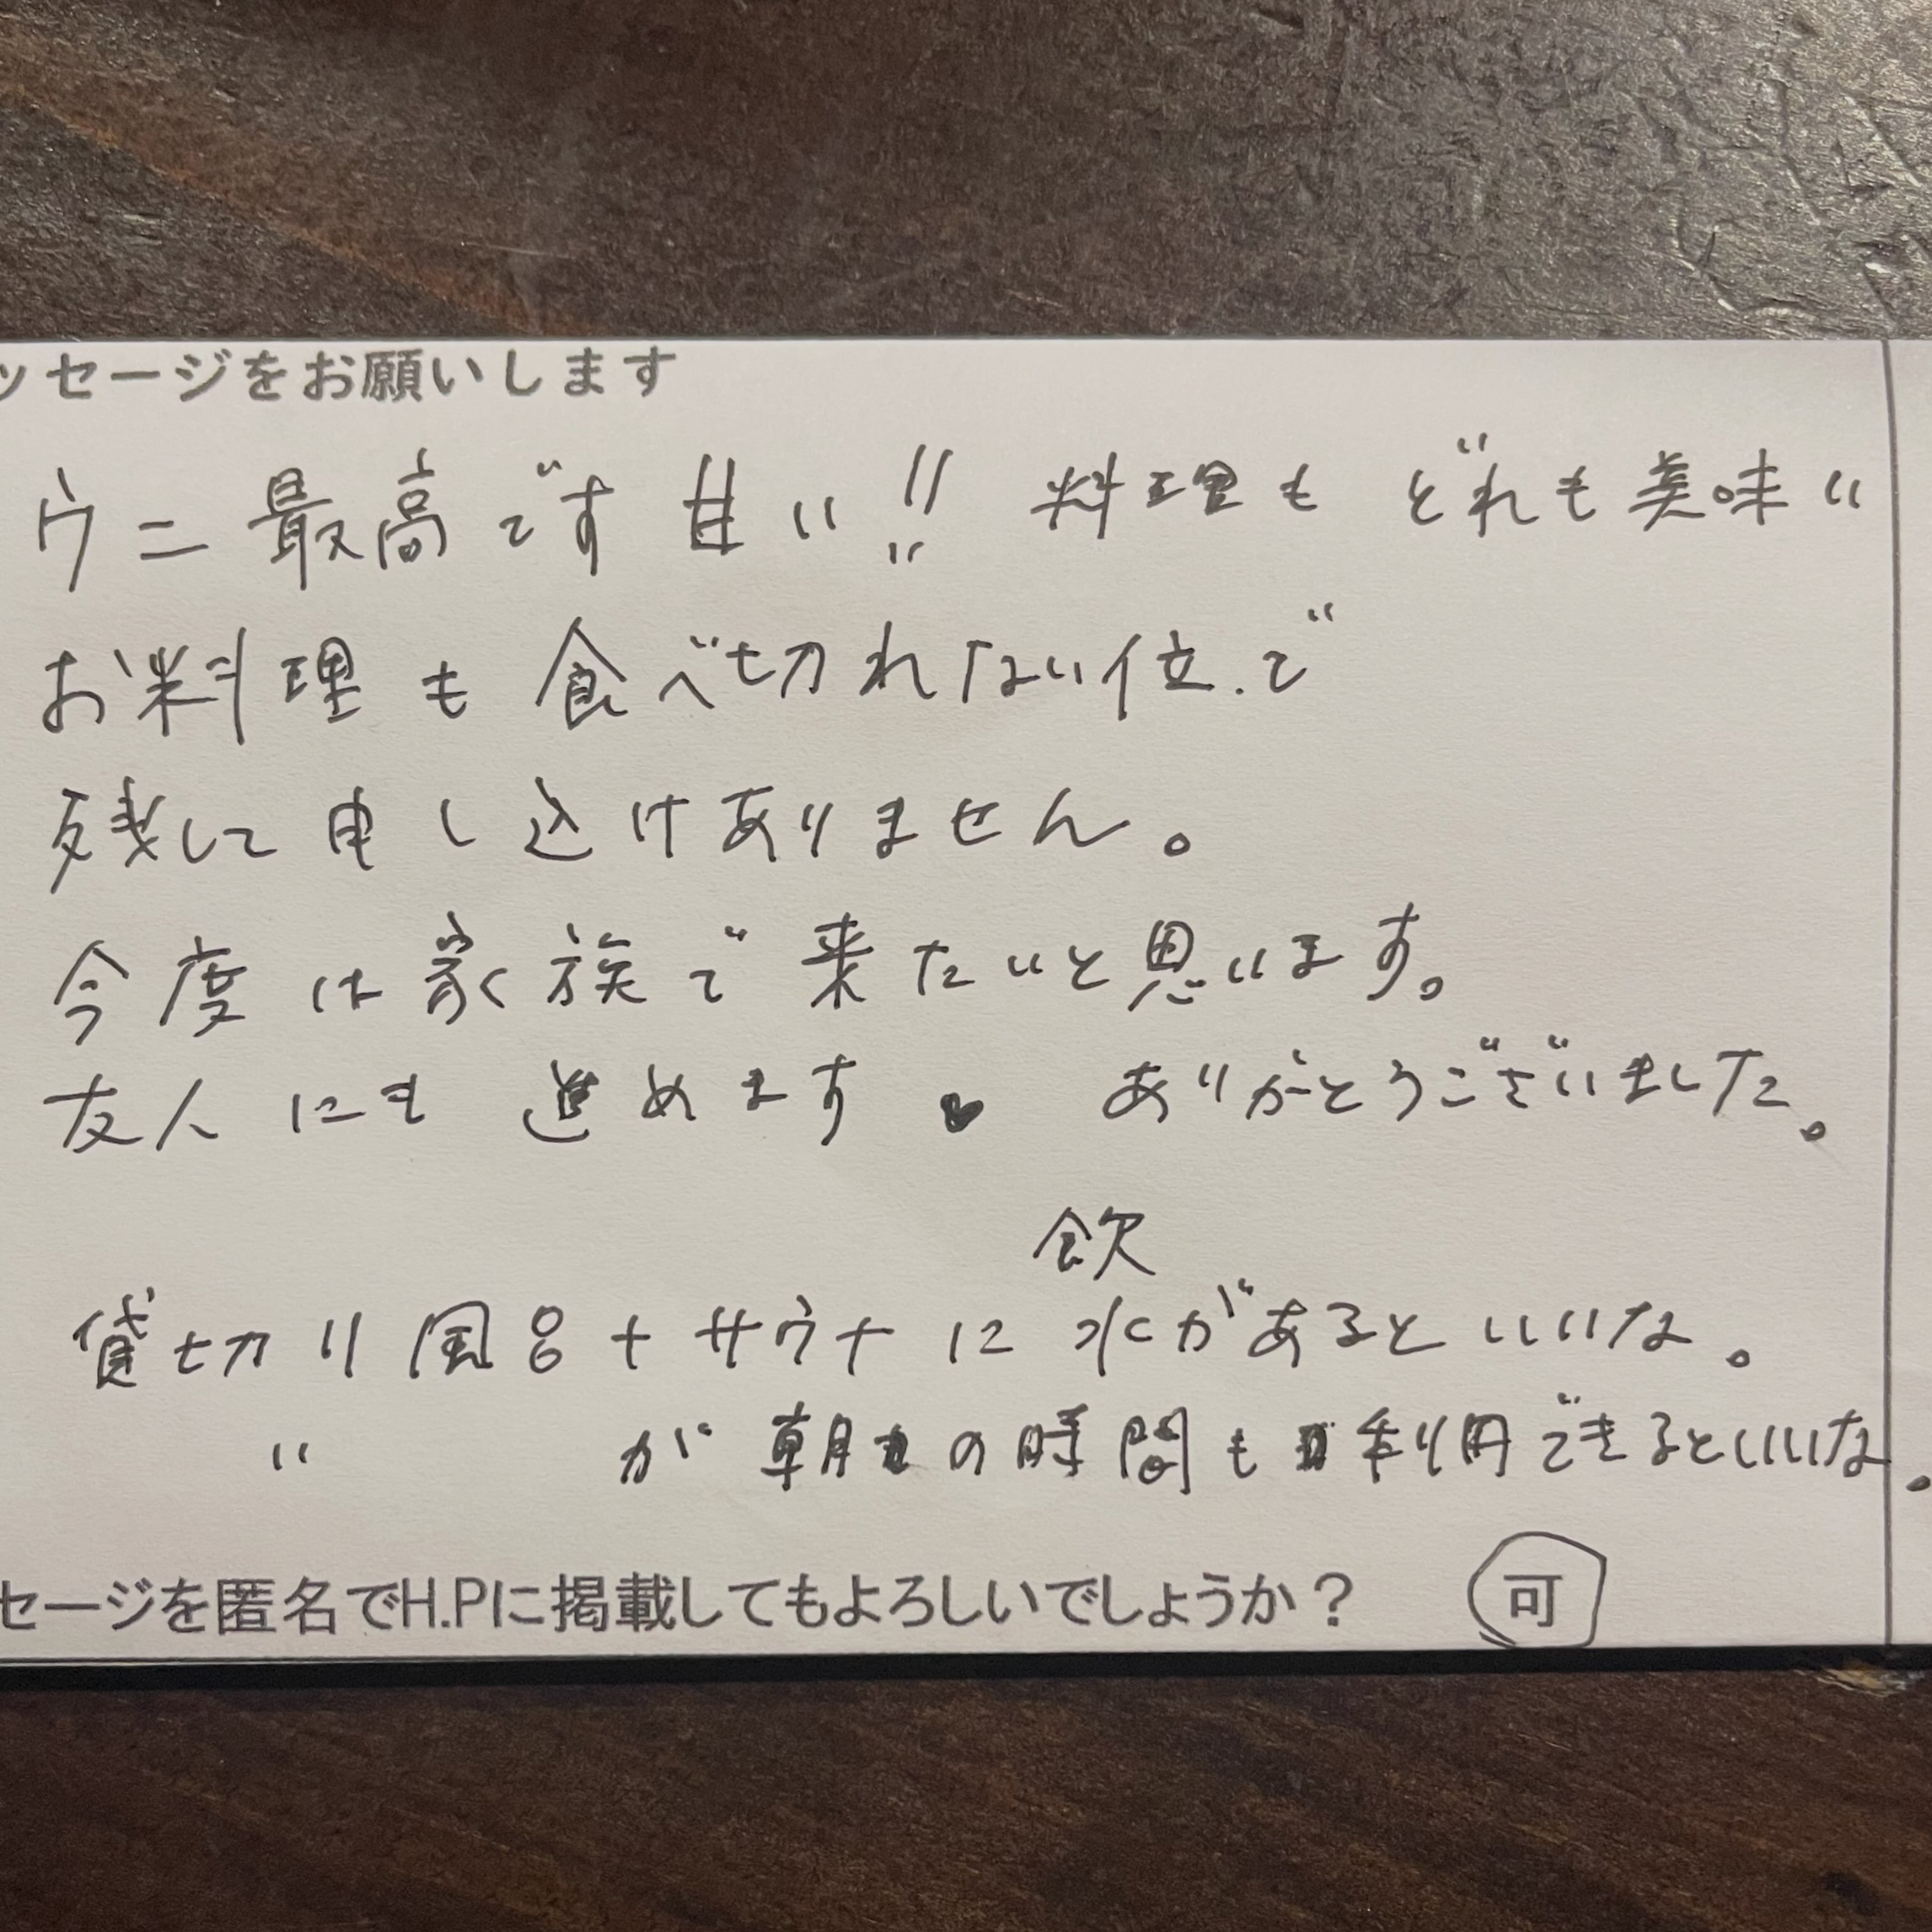 ッセージをお願いします
ウニ最高です甘い!! 料理もどれも美味い
お料理も食べ切れない位.で
残して申し込けありません。
今度は家族で来たいと思います。
友人にも進めます。 ありがとうございました。
飲
貸切り風呂+サウナに水があるといいな。
〃 が朝の時間も利用できるといいな。
セージを匿名でH.Pに掲載してもよろしいでしょうか? 可